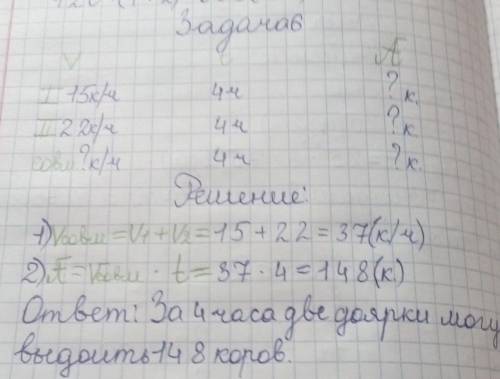 Задача6
V A
I 15к/ч 4ч ? к.
II 22к/ч 4ч ? к
совм ? к/ч 4ч ? к.
Решение:
1) Vсовм = V1 + V2 = 15 + 22 = 37 (к/ч)
2) A = Vсовм · t = 37 · 4 = 148 (к)
Ответ: За 4 часа две доярки могу
выдоить 148 коров.